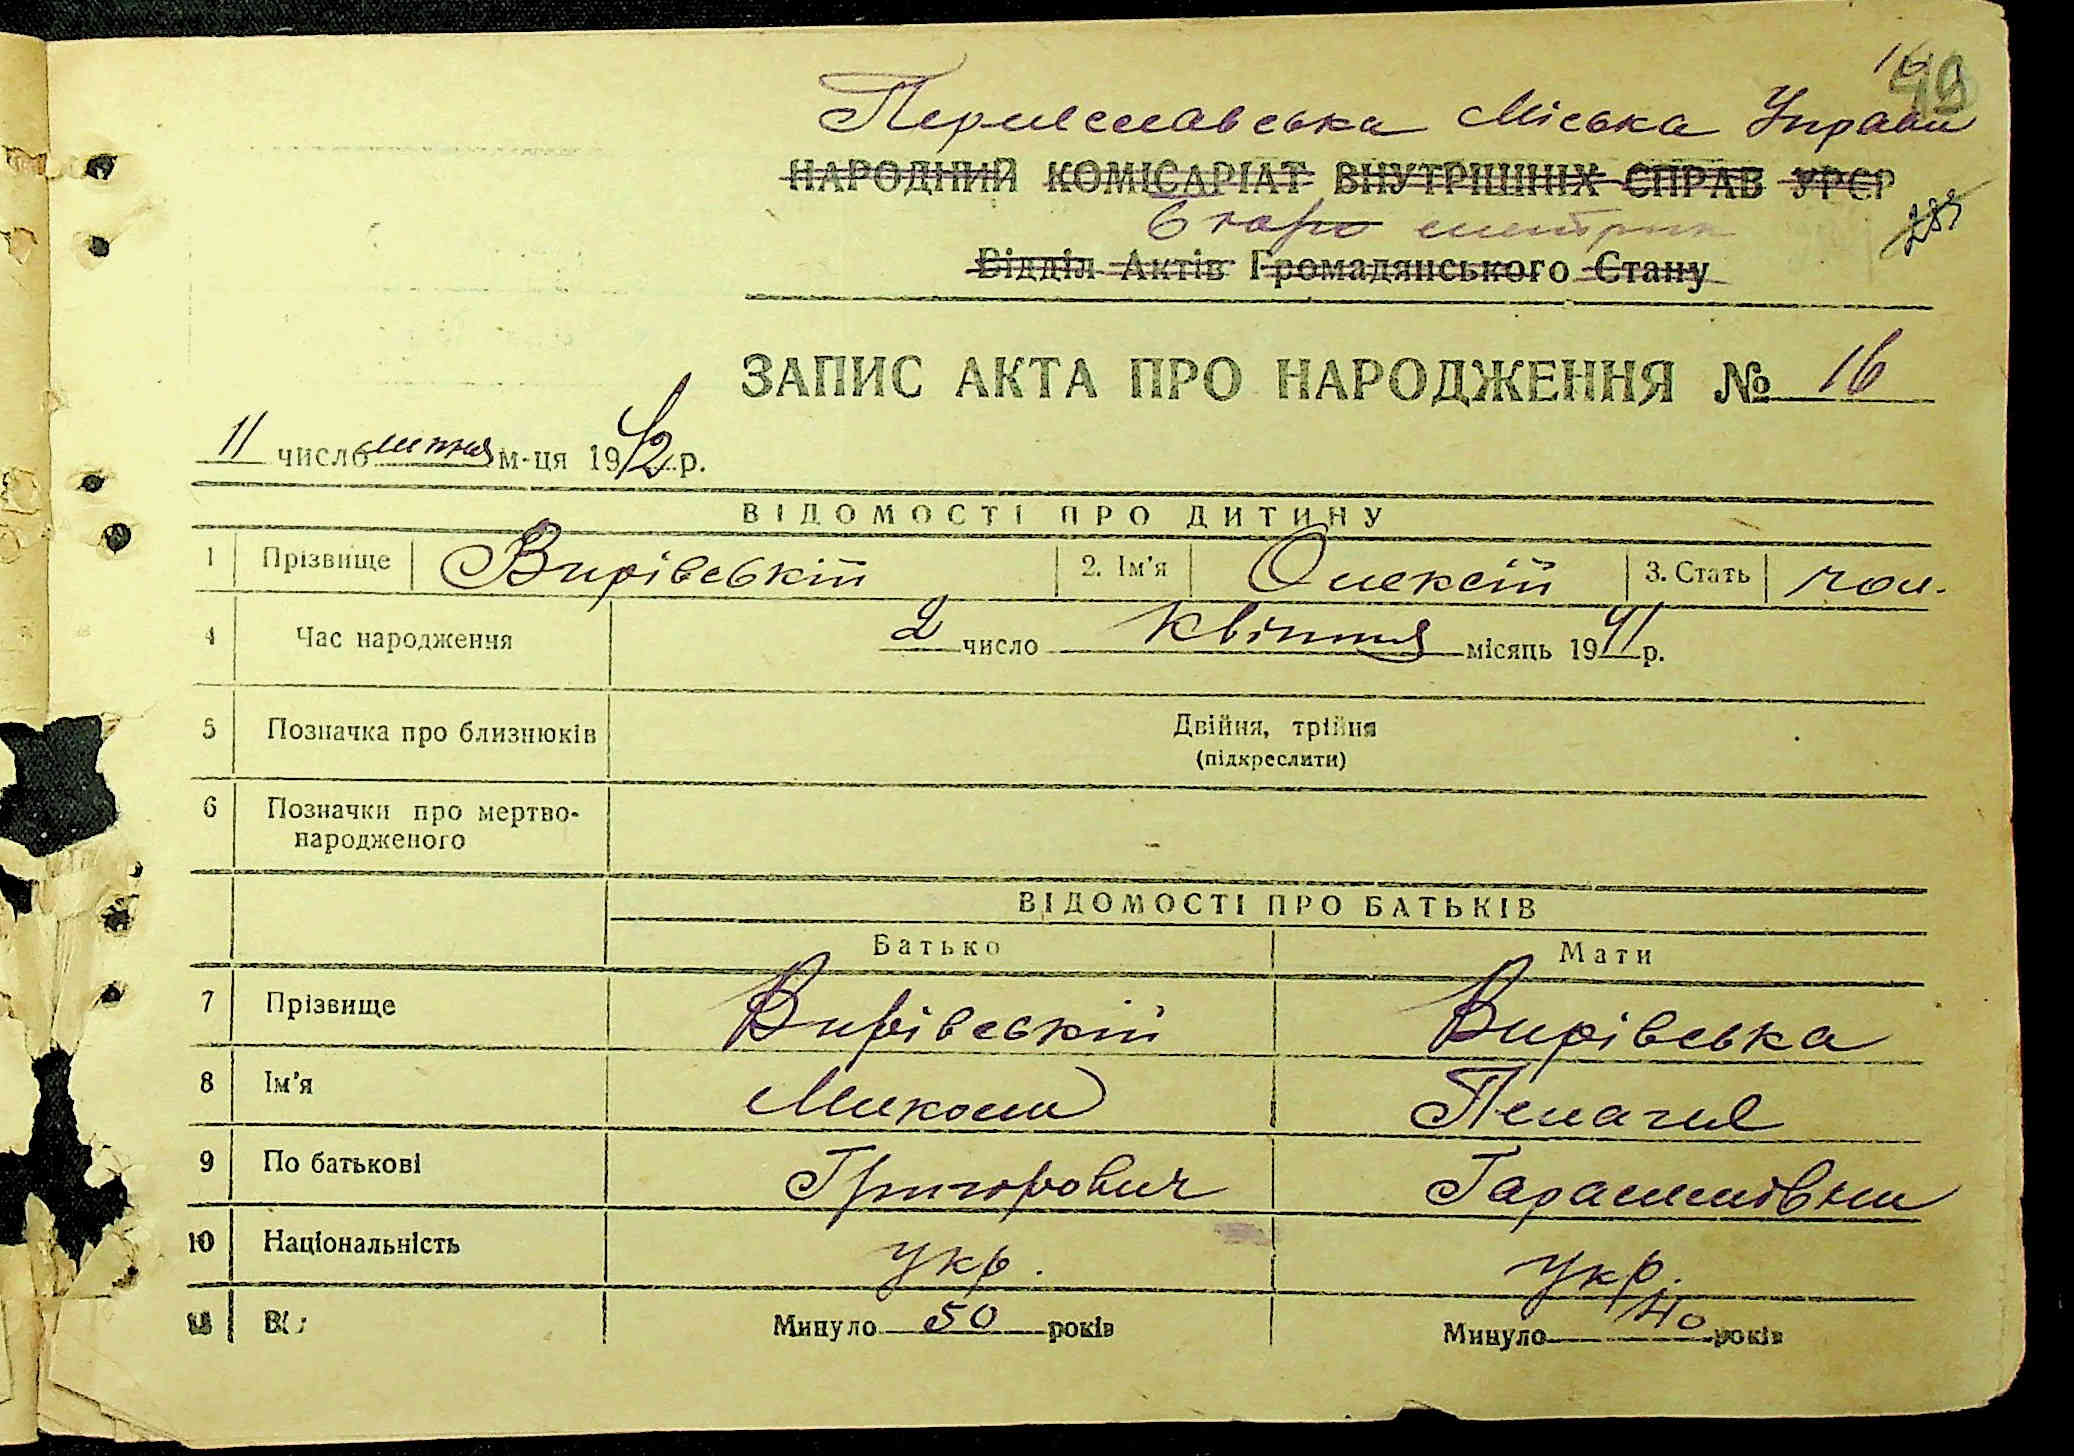 16
49
Переяславська Міська Управа
НАРОДНИЙ КОМІСАРІАТ ВНУТРІШНІХ СПРАВ УРСР
Бюро метрик
Відділ Актів Громадянського Стану
ЗАПИС АКТА ПРО НАРОДЖЕННЯ № 16
11 число липня м-ця 1942 р.
ВІДОМОСТІ ПРО ДИТИНУ
1 Прізвище Вирівській 2. Ім'я Олексій 3. Стать чол.
4 Час народження 2 число Квітня місяць 1941 р.
5 Позначка про близнюків Двійня, трійня
(підкреслити)
6 Позначки про мертво-
народженого
ВІДОМОСТІ ПРО БАТЬКІВ
Батько Мати
7 Прізвище Вирівській Вирівська
8 Ім'я Микола Пелагія
9 По батькові Григорович Гарасимівна
10 Національність укр. укр.
Минуло 50 років Минуло 40 років